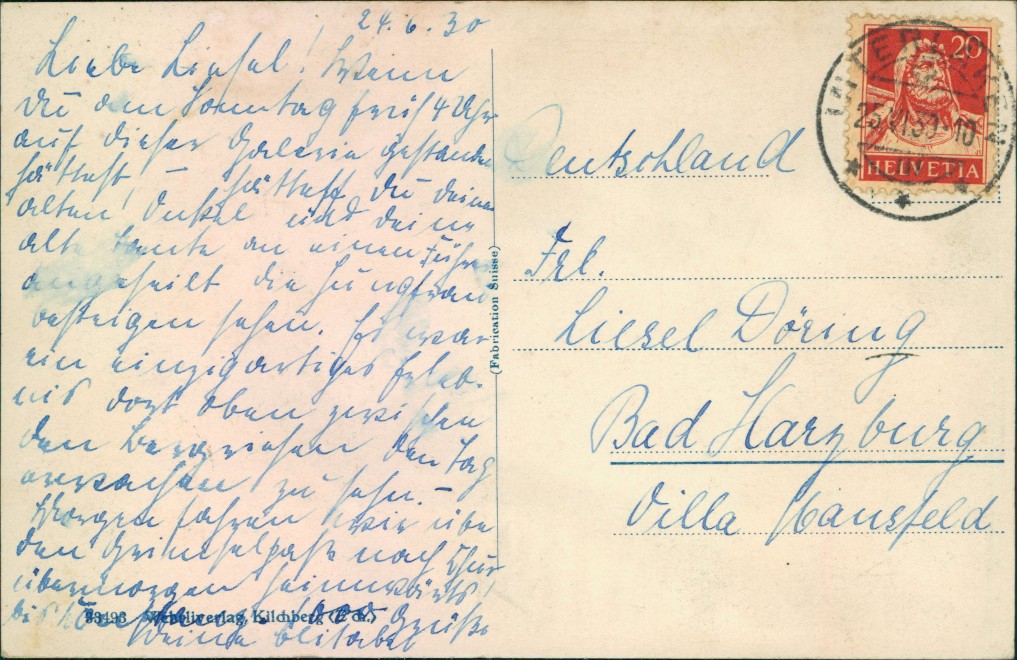 24.6.30
Liebe Liesel! Wenn
Du am Sonntag früh 4 Uhr
auf dieser Galerie gestanden
hättest – hättest Du Deinen
alten Onkel und Deine
alte Tante an einem Führer
angeseilt die Jungfrau
besteigen sehen. Es war
ein einzigartiges Erleb-
nis dort oben zwischen
den Bergriesen den Tag
erwachen zu sehn. –
Morgen fahren wir über
den Grimselpaß nach Chur
übermorgen heimwärts!
Grüße
Deine Elisabet
33493 Wehrliverlag, Kilchberg (Zch.)
(Fabrication Suisse)
INTERLAKEN
25.VI.30.10
20
HELVETIA
Deutschland
Frl.
Liesel Döring
Bad Harzburg
Villa Mansfeld